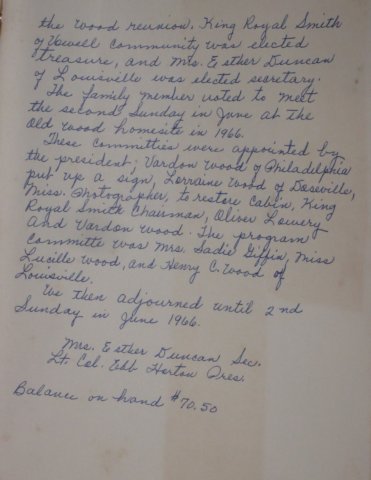 the Wood reunion. King Royal Smith
of Vowell Community was elected
Treasure, and Mrs. Esther Duncan
of Louisville was elected secretary.
The family member voted to meet
the second Sunday in June at the
Old Wood homesite in 1966.
These committies were appointed by
the president: Vardon Wood of Philadelphia
put up a sign, Lorraine Wood of Doseville,
Miss. Photographer, to restore cabin, King
Royal Smith Chairman, Oliver Lowery
and Vardon Wood. The program
Committe was Mrs. Sadie Giffin, Miss
Lucille Wood, and Henry C. Wood of
Louisville.
We then adjourned until 2nd
Sunday in June 1966.
Mrs. Esther Duncan Sec.
Lt. Col. Ebb Horton Pres.
Balance on hand $70.50